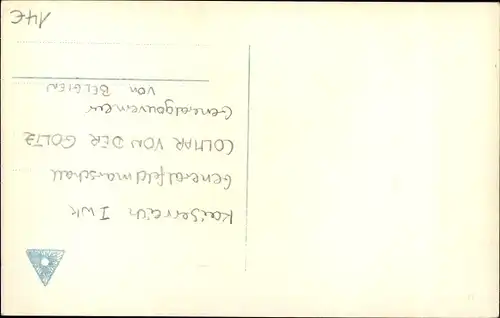 Kaiserreich IWK
Generalfeldmarschall
COLMAR VON DER GOLTZ
Generalgouverneur
von BELGIEN
14€